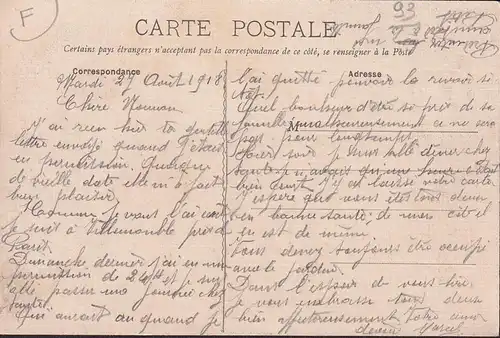 F
93
CARTE POSTALE
Certains pays étrangers n'acceptant pas la correspondance de ce côté, se renseigner à la Poste
Correspondance
Mardi 27 Août 1918
Chère
J'ai reçu hier ta gentille
lettre envoyé quand j'étais
en permission. Quoique
de vieille date elle m'a fait
bien plaisir
Comme je vous l'ai écrit
je suis à Villemomble près de
Paris
Dimanche dernier j'ai eu une
permission de 24h et je suis
allé passer une journée chez
Qui aurait dit quand je
Adresse
M
l'ai quitté pouvoir la revoir si
tôt.
Quel bonheur d'être si près de sa
famille malheureusement ce ne sera
pas pour longtemps.
Hier soir je suis allé dîner chez
bien content
J'espère que vous êtes tous deux
en bonne santé, de mon côté il
en est de même.
Vous devez toujours être occupé
avec le jardin.
Dans l'espoir de vous lire
je vous embrasse tous deux
bien affectueusement votre ami
dévoué Marcel